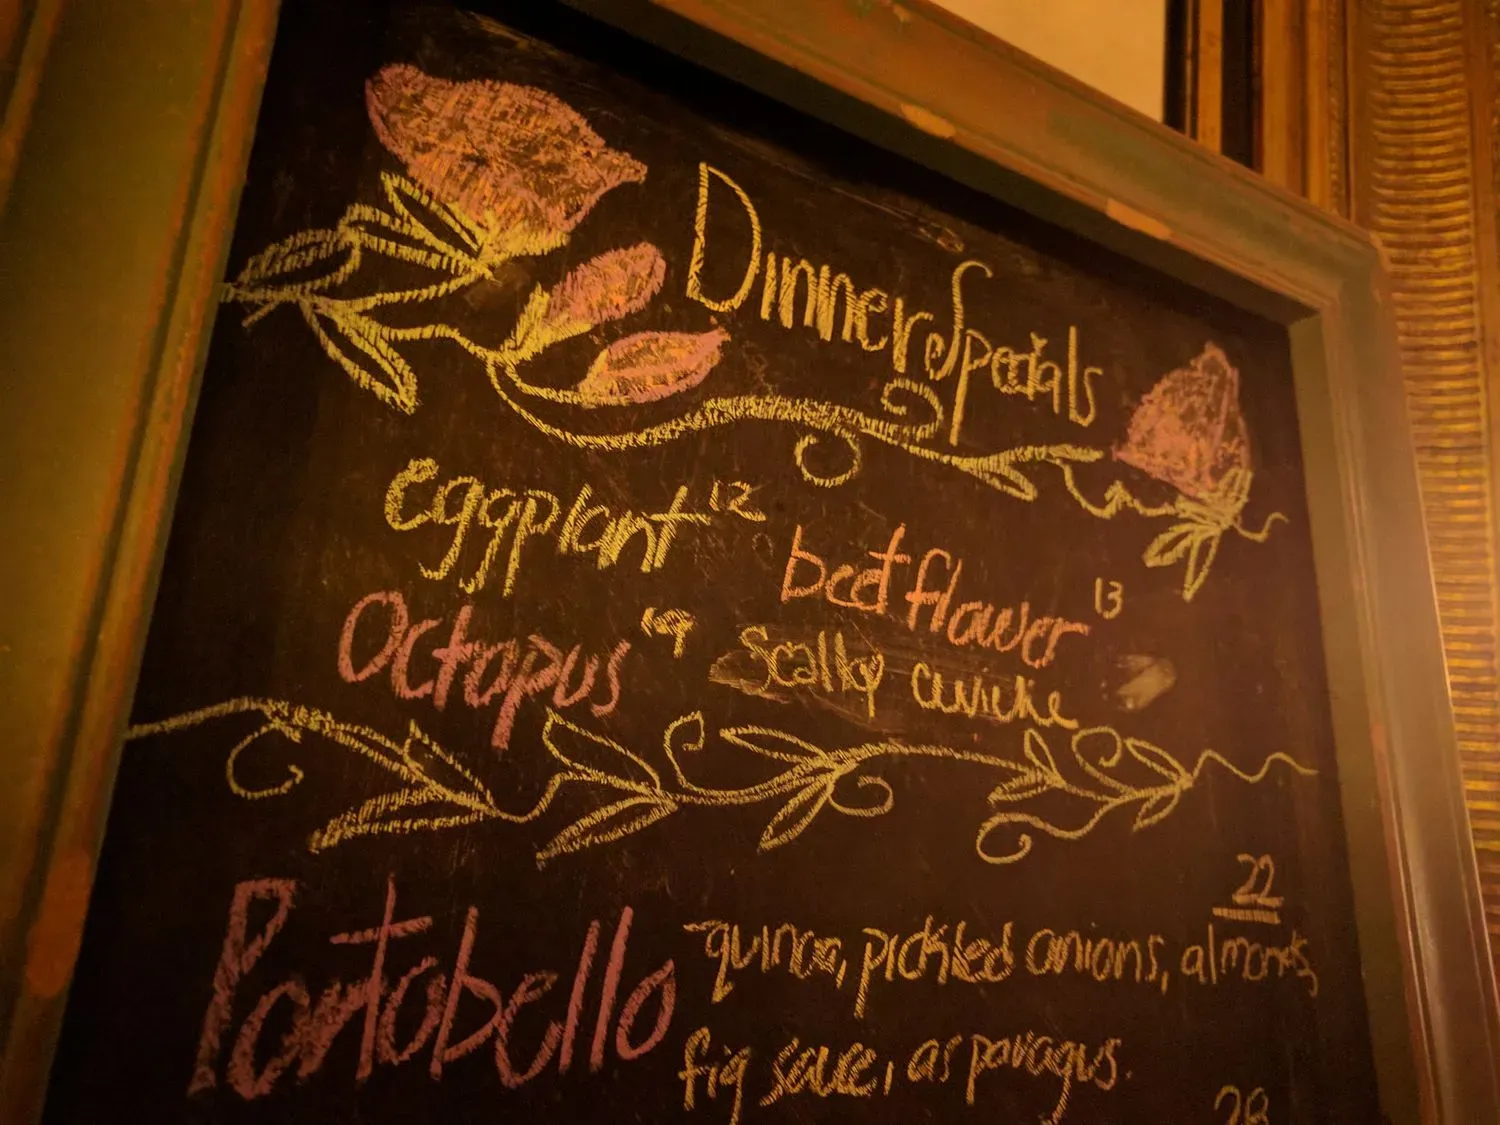 Dinner Specials
eggplant 12
beet flower 13
Octopus
Scallop ceviche
22
Portobello
quinoa, pickled onions, almonds,
fig sauce, asparagus.
28